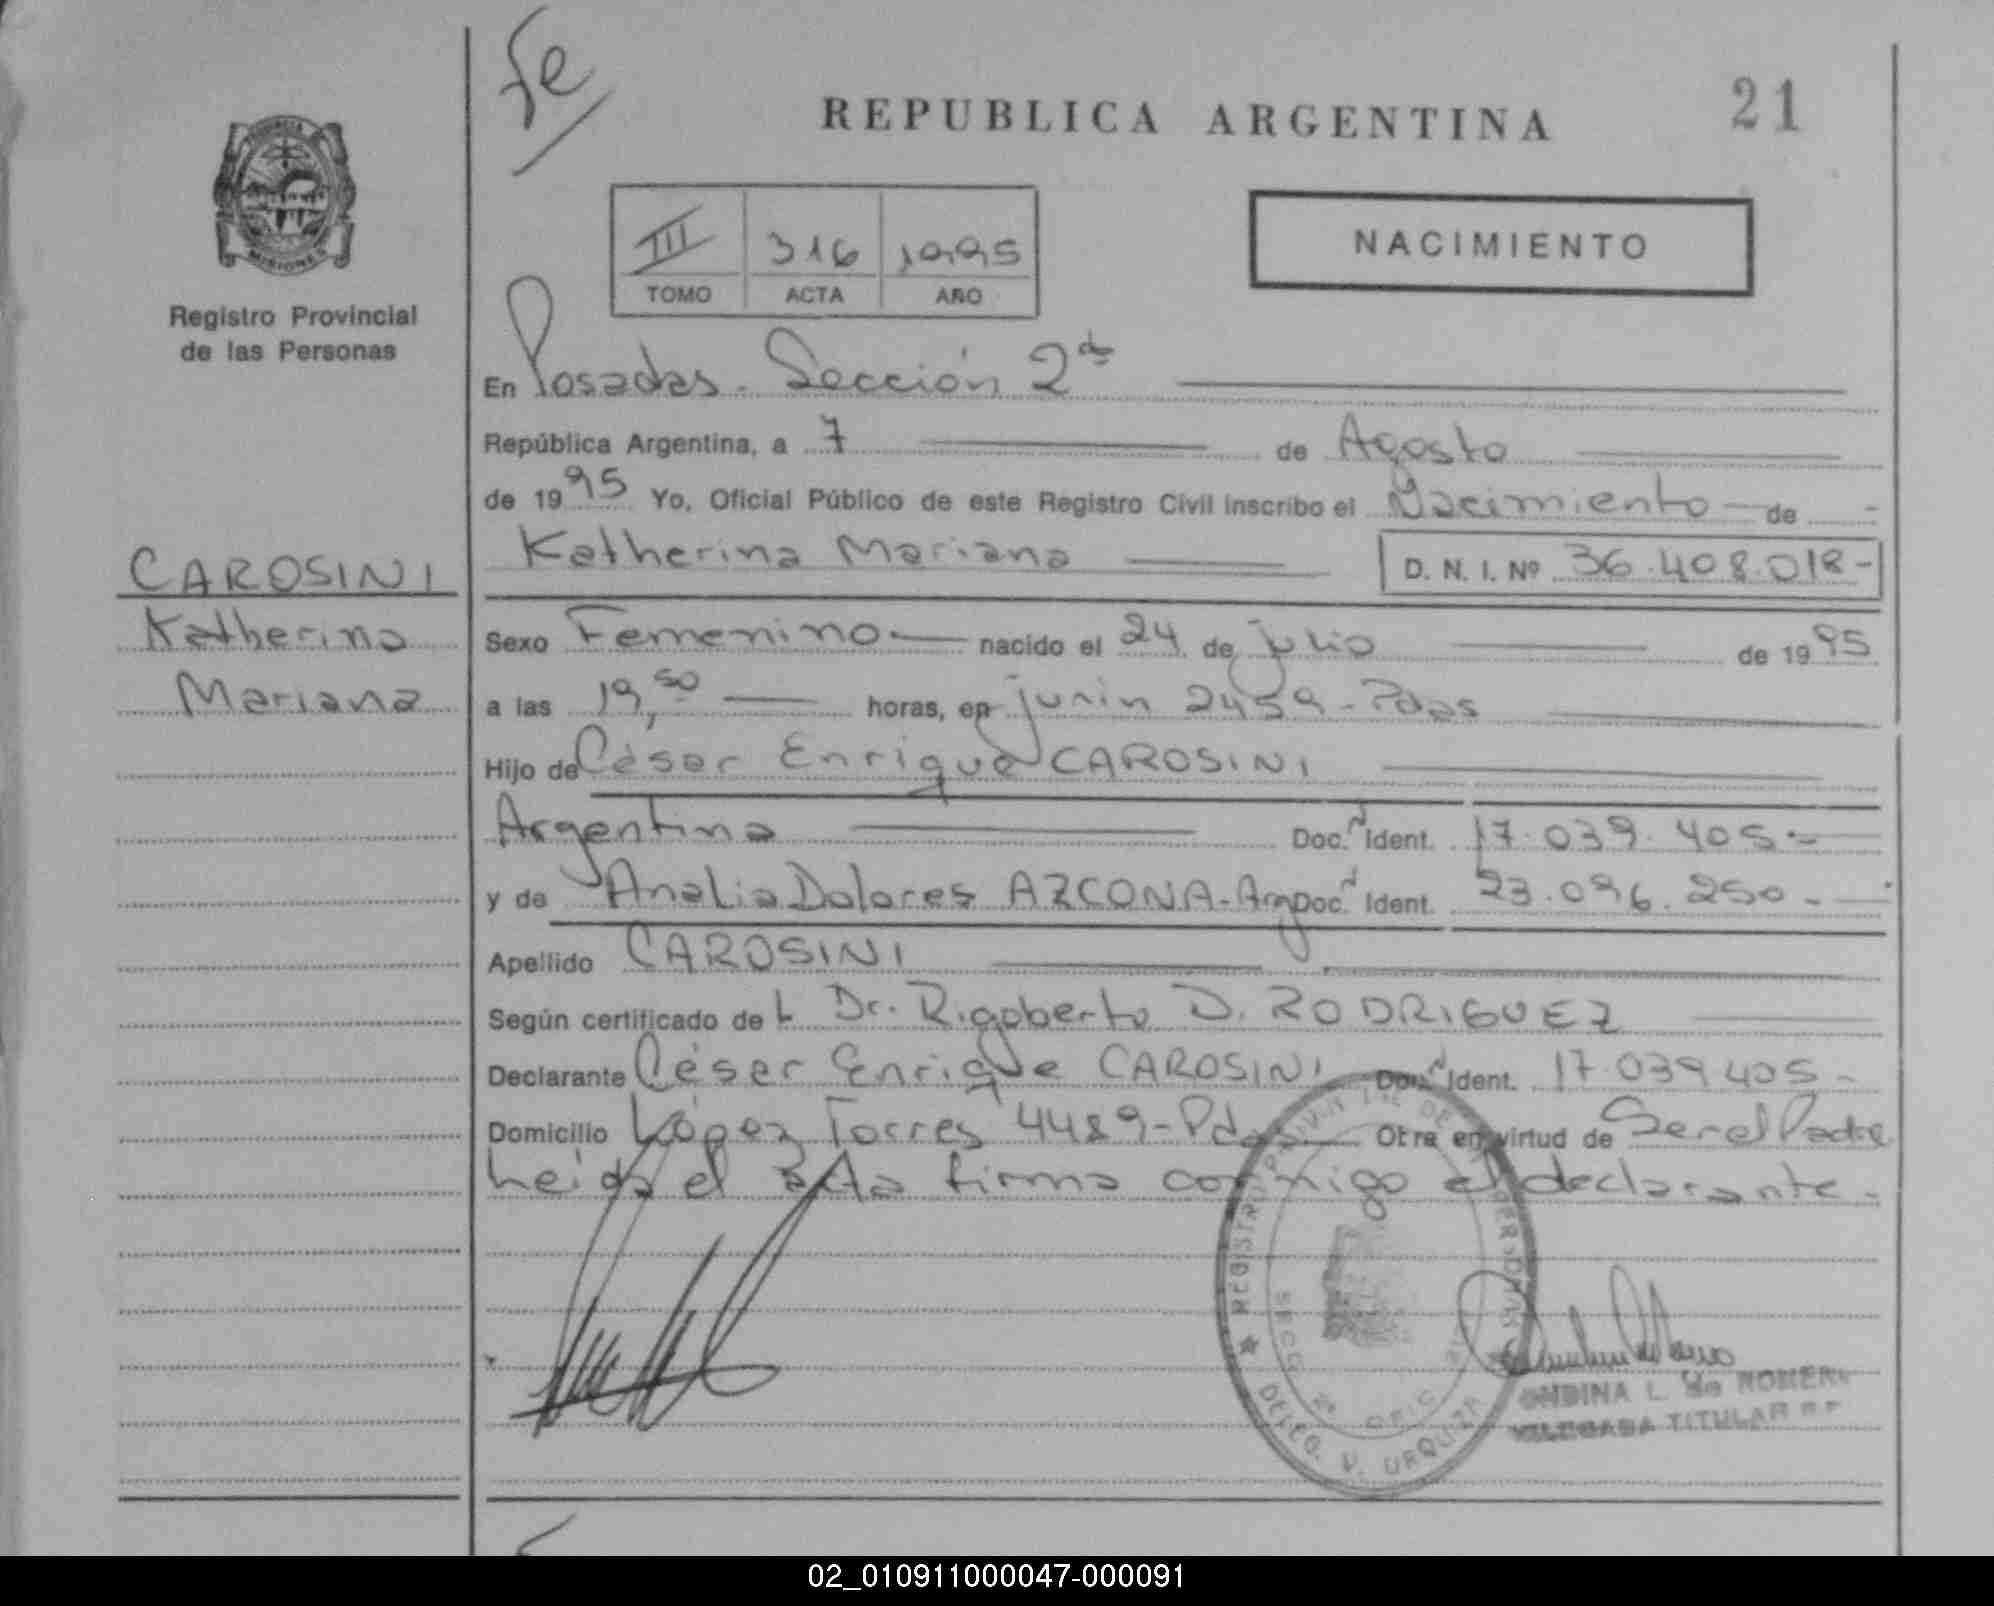 Fe
REPUBLICA ARGENTINA
21
PROVINCIA
MISIONES
Registro Provincial
de las Personas
III 316 1995
TOMO ACTA AÑO
NACIMIENTO
En Posadas - Sección 2da
República Argentina, a 7 de Agosto
de 1995 Yo, Oficial Público de este Registro Civil inscribo el Nacimiento de
Katherina Mariana D. N. I. Nº 36.408.018-
CAROSINI
Katherina
Mariana
Sexo Femenino nacido el 24 de julio de 1995
a las 19,50 horas, en junin 2459 - Pdas
Hijo de César Enrique CAROSINI
Argentina Doc. N Ident. 17.039.405.-
y de Analia Dolores AZCONA - Arg Doc. N Ident. 23.096.250.-
Apellido CAROSINI
Según certificado del Dr. Rigoberto D. RODRIGUEZ
Declarante César Enrique CAROSINI Doc. N Ident. 17.039.405-
Domicilio López Torres 4489 - Pdas Obra en virtud de Ser el Padre
Leida el acta firma conmigo el declarante.-
REGISTRO PROVINCIAL DE LAS PERSONAS
SECC 2a OFIC
DELEG. V. URQUIZA
ONDINA L. de ROMERO
DELEGADA TITULAR R P
02_010911000047-000091